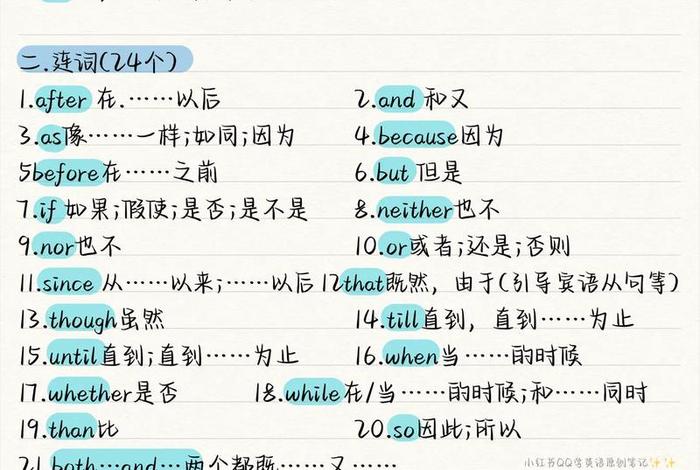 二.连词(24个)
1.after 在.……以后 2.and 和又
3.as像……一样;如同;因为 4.because因为
5before在……之前 6.but但是
7.if 如果;假使;是否;是不是 8.neither也不
9.nor也不 10.or或者;还是;否则
11.since 从……以来;……以后 12that既然，由于(引导宾语从句等)
13.though虽然 14.till直到，直到……为止
15.until直到;直到……为止 16.when当……的时候
17.whether是否 18.while在/当……的时候;和……同时
19.than比 20.so因此;所以
21.both…and…两个都既……又……
小红书QQ学英语原创笔记